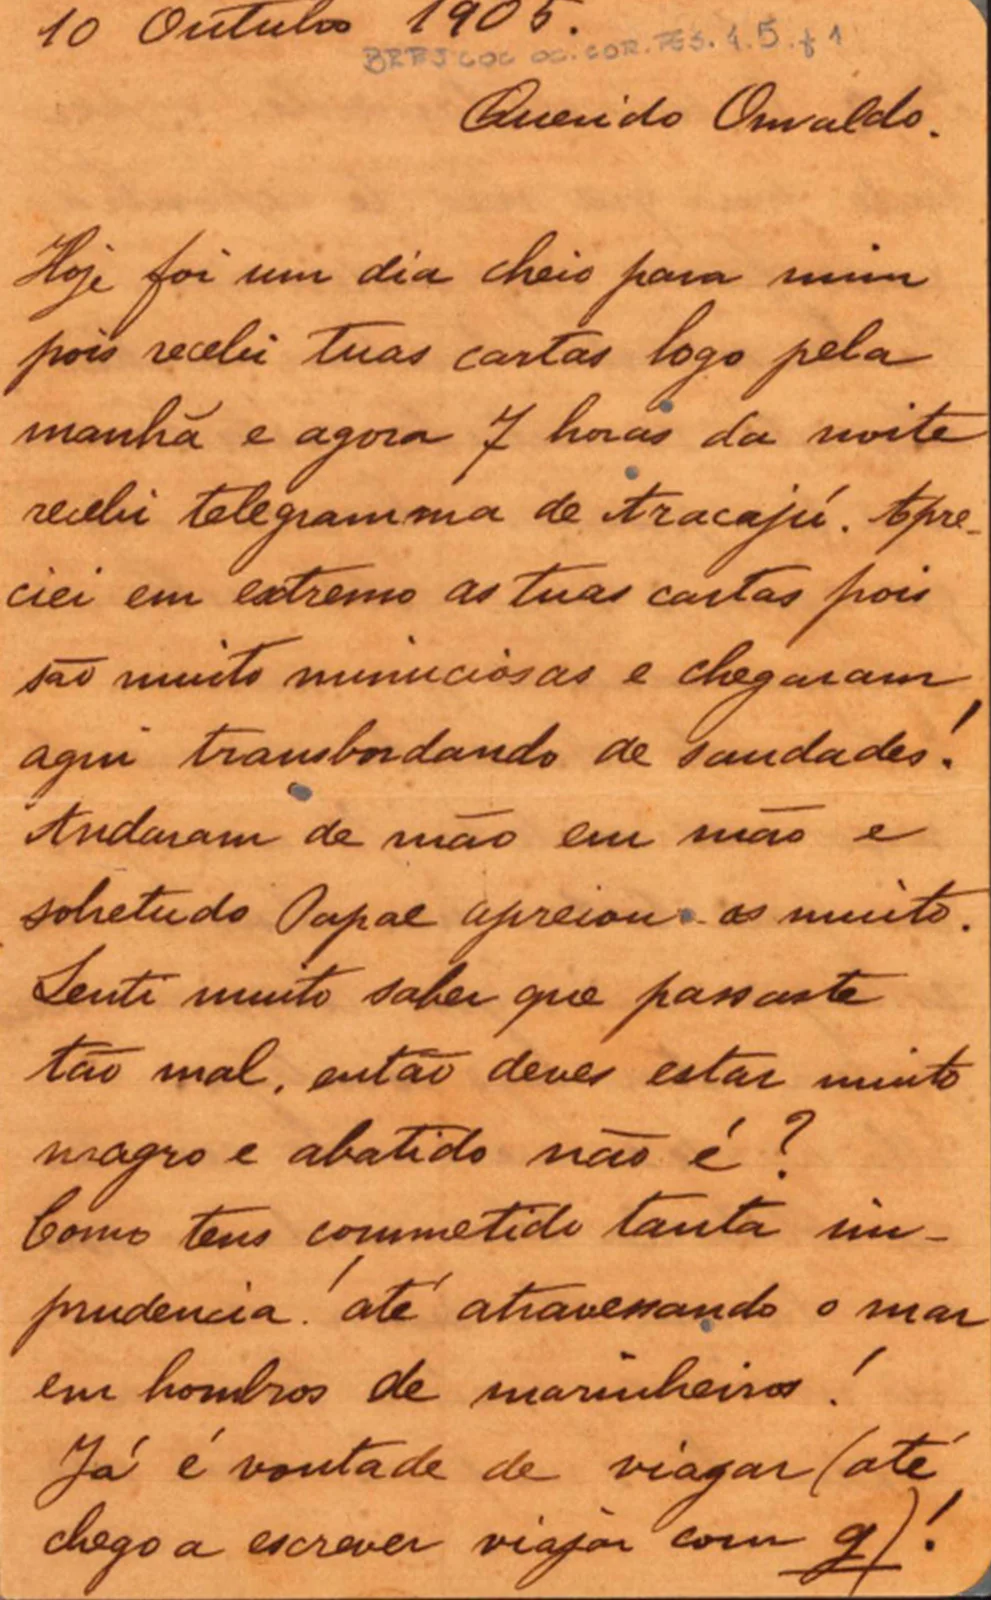 10 Outubro 1905.
BR RJ COC OC.COR.PES.1.5.f 1
Querido Oswaldo.
Hoje foi um dia cheio para mim
pois recebi tuas cartas logo pela
manhã e agora 7 horas da noite
recebi telegramma de Aracajú. Apre-
ciei em extremo as tuas cartas pois
são muito minuciosas e chegaram
aqui transbordando de saudades!
Andaram de mão em mão e
sobretudo Papae apreiou-as muito.
Senti muito saber que passaste
tão mal, então deves estar muito
magro e abatido não é?
Como tens commetido tanta im-
prudencia! até atravessando o mar
em hombros de marinheiros!
Já é vontade de viagar (até
chego a escrever viajar com g)!